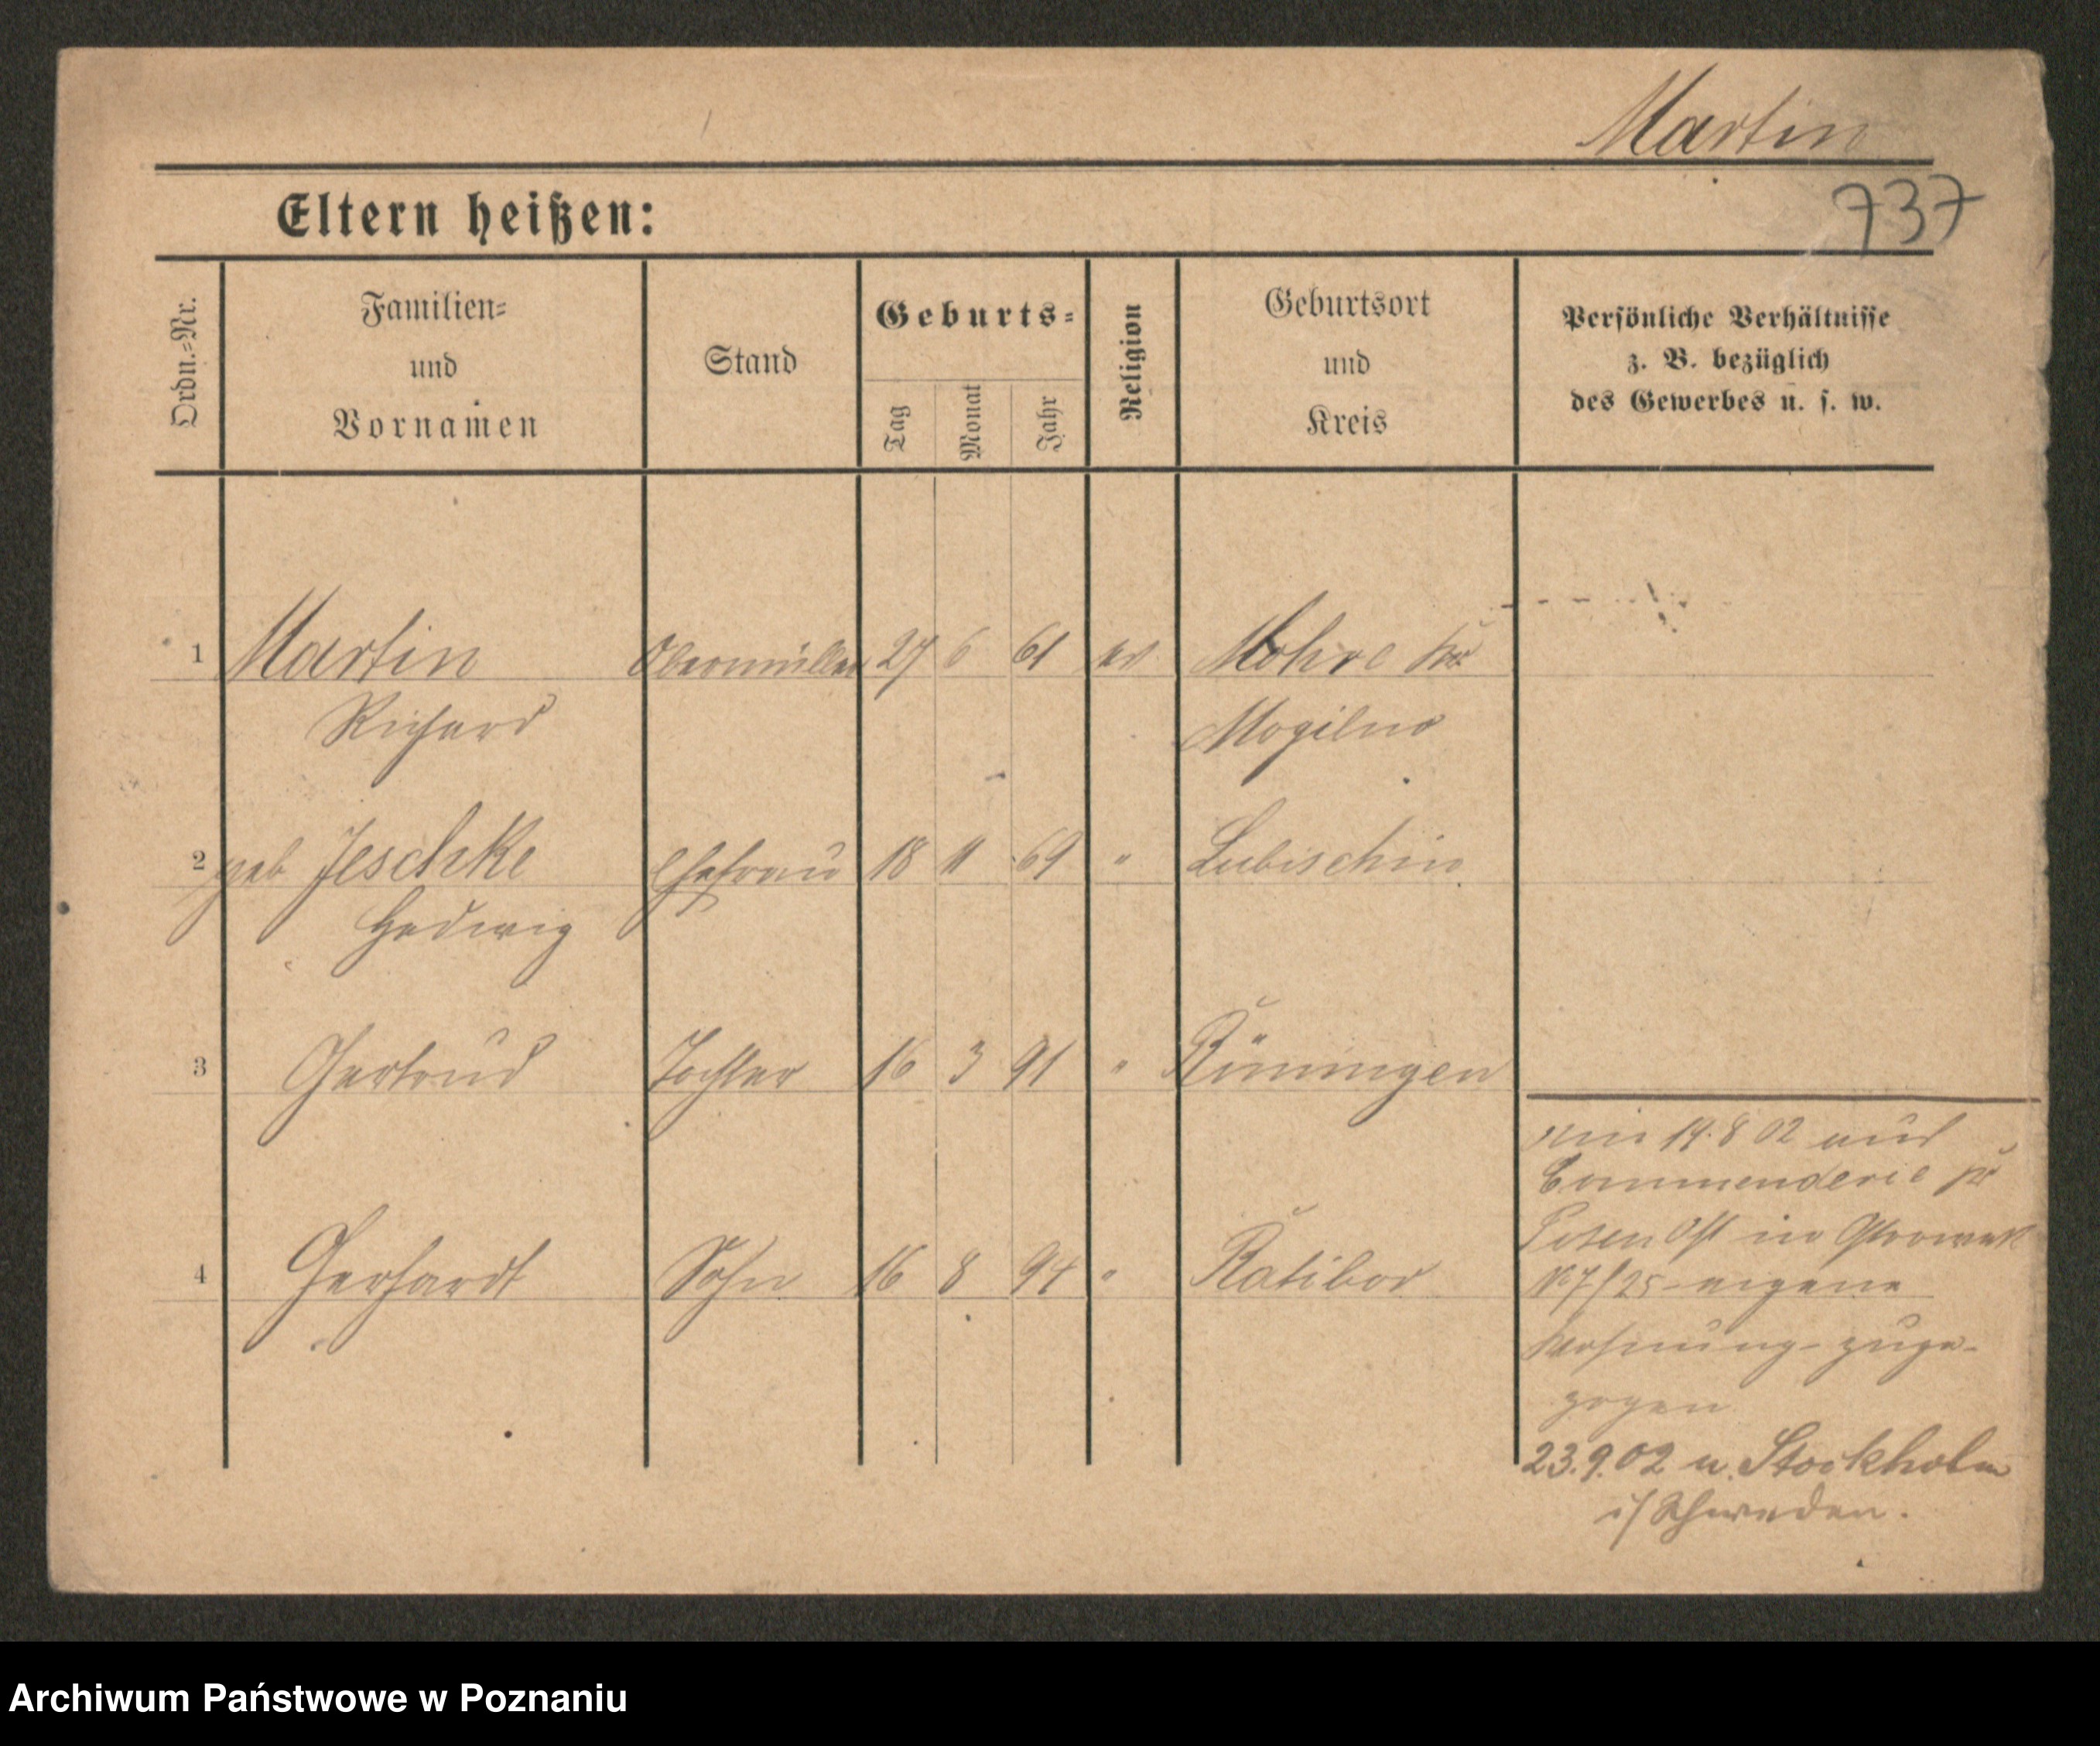 Martin
737
Eltern heißen:
Ordn.-Nr.
Familien-
und
Vornamen
Stand
Geburts-
Tag
Monat
Jahr
Religion
Geburtsort
und
Kreis
Persönliche Verhältnisse
z. B. bezüglich
des Gewerbes u. s. w.
1 Martin Obermüller 27 6 61 ev Mohre Kr
Richard Mogilno
2 geb Jeschke Ehefrau 18 11 69 " Lubischin
Hedwig
3 Gertrud Tochter 16 3 91 " Rüningen
4 Gerhardt Sohn 16 8 94 " Ratibor
14.8 02 aus
Commenderie
Posen Ost in
No 7/25 - eigene
Wohnung - zuge-
zogen
23.9.02 n. Stockholm
i/Schweden.
Archiwum Państwowe w Poznaniu